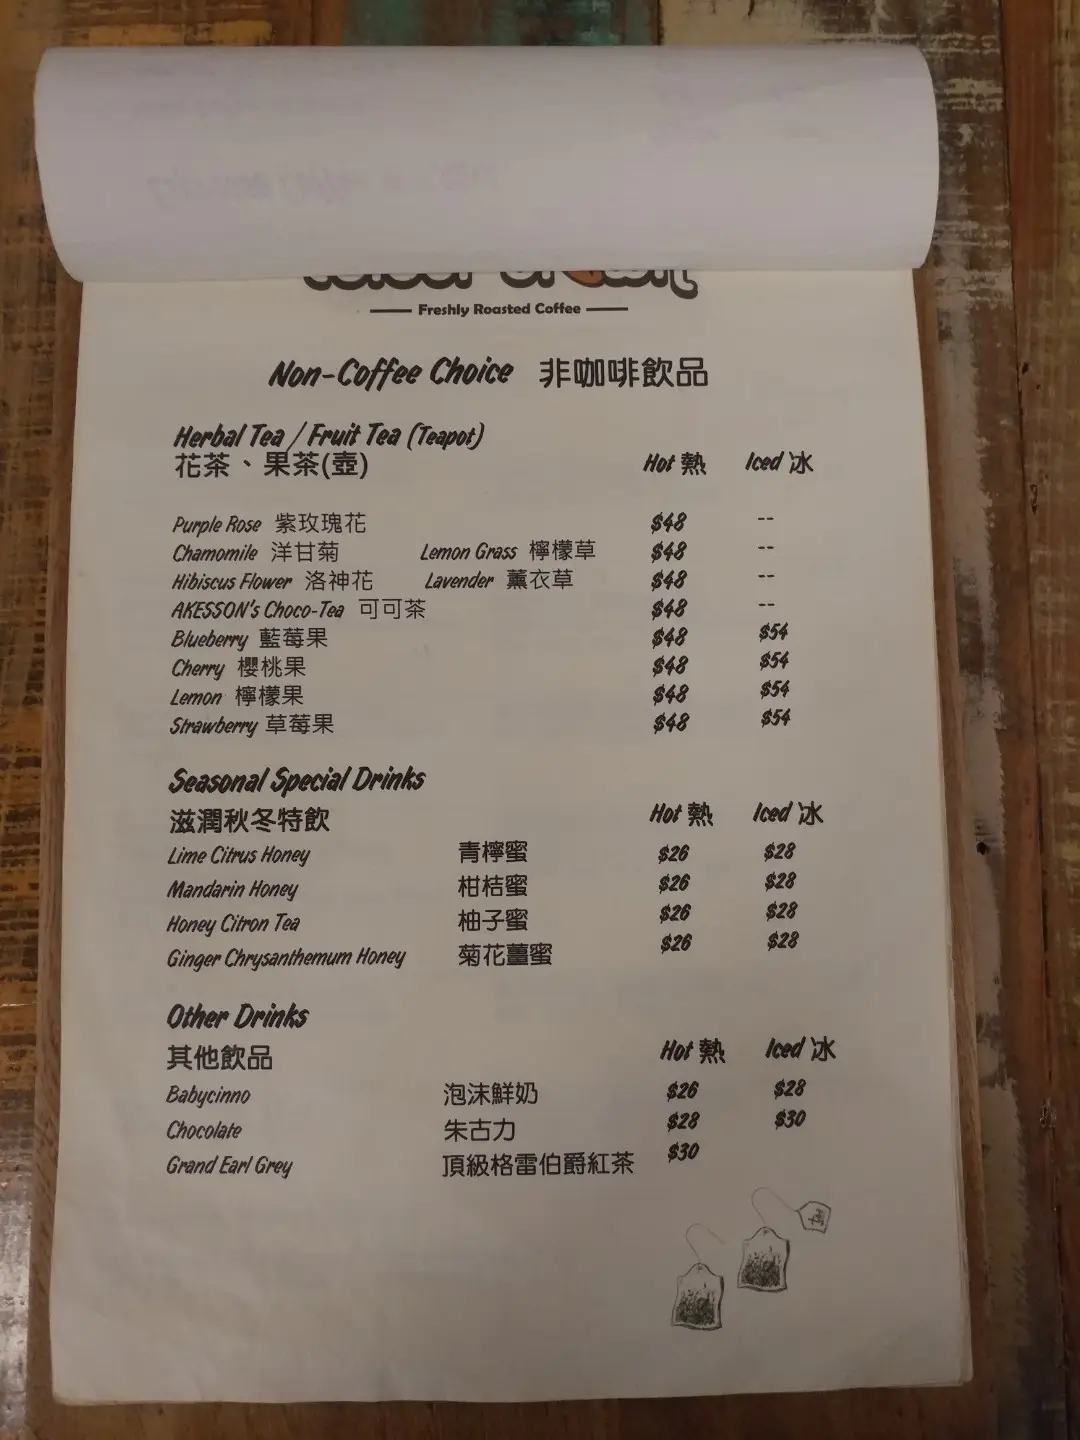 Freshly Roasted Coffee
Non-Coffee Choice 非咖啡飲品
Herbal Tea / Fruit Tea (Teapot)
花茶、果茶(壺) Hot 熱 Iced 冰
Purple Rose 紫玫瑰花 $48 --
Chamomile 洋甘菊 Lemon Grass 檸檬草 $48 --
Hibiscus Flower 洛神花 Lavender 薰衣草 $48 --
AKESSON's Choco-Tea 可可茶 $48 --
Blueberry 藍莓果 $48 $54
Cherry 櫻桃果 $48 $54
Lemon 檸檬果 $48 $54
Strawberry 草莓果 $48 $54
Seasonal Special Drinks
滋潤秋冬特飲 Hot 熱 Iced 冰
Lime Citrus Honey 青檸蜜 $26 $28
Mandarin Honey 柑桔蜜 $26 $28
Honey Citron Tea 柚子蜜 $26 $28
Ginger Chrysanthemum Honey 菊花薑蜜 $26 $28
Other Drinks
其他飲品 Hot 熱 Iced 冰
Babycinno 泡沫鮮奶 $26 $28
Chocolate 朱古力 $28 $30
Grand Earl Grey 頂級格雷伯爵紅茶 $30